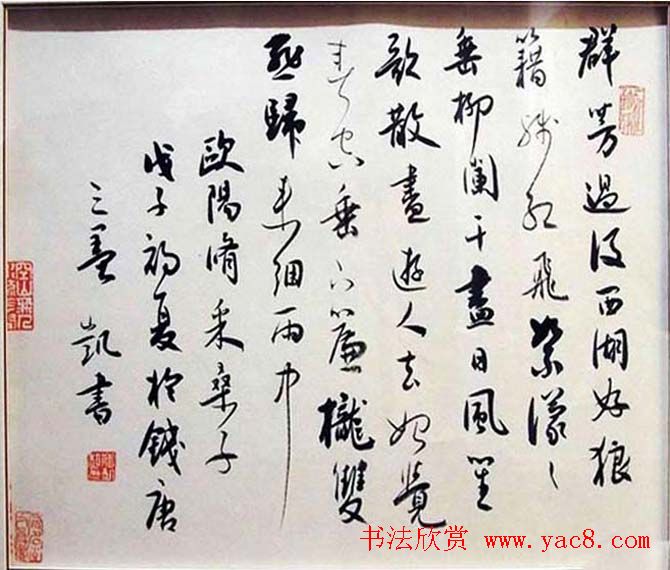 群芳過後西湖好狼
籍殘紅飛絮濛〻
垂柳闌干盡日風笙
歌散盡遊人去始覺
春空垂下簾櫳雙
燕歸來細雨中
歐陽脩采桑子
戊子初夏於錢唐
凱書
书法欣赏 www.yac8.com